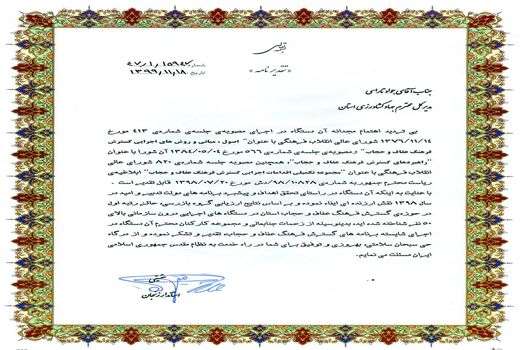 بسمه تعالی
شماره ۴۷/۱/۱۵۹۴۷
تاریخ ۱۳۹۹/۱۱/۱۸
« تقدیر نامه »
جناب آقای جواد تارای
مدیرکل محترم جهاد کشاورزی استان
بی تردید اهتمام مجدانه آن دستگاه در اجرای مصوبه‌ی جلسه‌ی شماره‌ی ۴۱۳ مورخ
۱۳۷۶/۱۱/۱۴ شورای عالی انقلاب فرهنگی با عنوان" اصول، مبانی و روش های اجرایی گسترش
فرهنگ عفاف و حجاب" ومصوبه‌ی جلسه‌ی شماره‌ی ۵۶۶ مورخ ۱۳۸۴/۰۵/۰۴ آن شورا با عنوان
"راهبردهای گسترش فرهنگ عفاف و حجاب"، همچنین مصوبه جلسه شماره‌ی ۸۲۰ شورای عالی
انقلاب فرهنگی با عنوان "مجموعه تکمیلی اقدامات اجرایی گسترش فرهنگ عفاف و حجاب" ابلاغیه‌ی
ریاست محترم جمهور به شماره‌ی ۹۸/۱۰۸۲۸/دش مورخ ۱۳۹۸/۰۷/۲۰ قابل تقدیر است .
با عنایت به اینکه آن دستگاه در راستای تحقق اهداف و پیشبرد برنامه های دولت تدبیر و امید در
سال ۱۳۹۸ نقش ارزنده ای ایفاء نموده و بر اساس نتایج ارزیابی گروه بازرسی، حائز رتبه اول
در حوزه‌ی گسترش فرهنگ عفاف و حجاب استان در دستگاه های اجرایی درون سازمانی بالای
۵۰ نفر شناخته شده اید، بدینوسیله از زحمات جنابعالی و مجموعه کارکنان محترم آن دستگاه در
اجرای شایسته برنامه های گسترش فرهنگ عفاف و حجاب، تقدیر و تشکر نموده و از درگاه
حی سبحان سلامتی، بهروزی و توفیق برای شما در راه خدمت به نظام مقدس جمهوری اسلامی
ایران مسئلت می نمایم.
حقیقی
استاندار زنجان